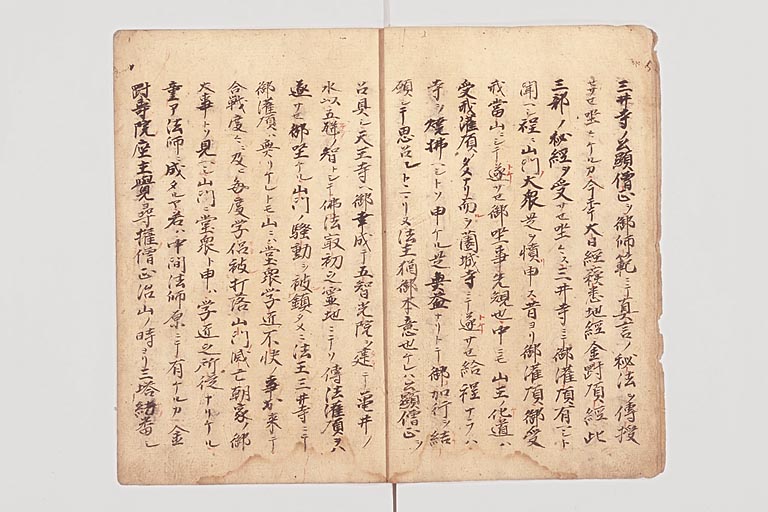 三井寺ノ公顕僧正ヲ御師範ニテ真言ノ秘法ヲ傳授
セサセ坐シケルカ今年大日経蘇悉地経金剛頂経此
三部ノ秘経ヲ受サセ坐シテ三井寺ニテ御灌頂有ヘシト
聞ヘシ程ニ山門大衆是ヲ憤申ス昔ヨリ御灌頂御受
戒當山ニシテ遂サセ御坐事先規也中ニモ山王ノ化道ハ
受戒灌頂ノタメナリ而ヲ薗城寺ニテ遂サセ給程ナラハ
寺ヲ焼拂ヘシトソ申ケル是無益ナリトテ御加行ヲ結
願シテ思召シトマリヌ法王猶御本意也ケレハ公顕僧正ヲ
召具シテ天王寺ヘ御幸成テ五智光院ヲ建テ亀井ノ
水以五瓶ノ智トシテ佛法最初之霊地ニテソ傳法灌頂ヲハ
遂サセ御坐ケル山門ノ騒動ヲ被鎮タメニ法王三井寺ニテ
御灌頂ハ無リケレトモ山ニハ堂衆学近不快ノ事出来テ
合戦度々ニ及フ毎度学侶被打落山門滅亡朝家ノ御
大事トソ見ヘシ山門ニ堂衆ト申ハ学近之所従ナリケル
童ヲ法師ニ成タルヤ若ハ中間法師原ニテ有ケルカ金
剛寿院座主覚尋権僧正治山ノ時ヨリ三塔結番シ